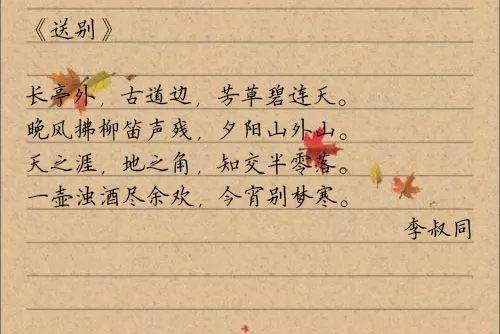 《送别》
长亭外，古道边，芳草碧连天。
晚风拂柳笛声残，夕阳山外山。
天之涯，地之角，知交半零落。
一壶浊酒尽余欢，今宵别梦寒。
李叔同